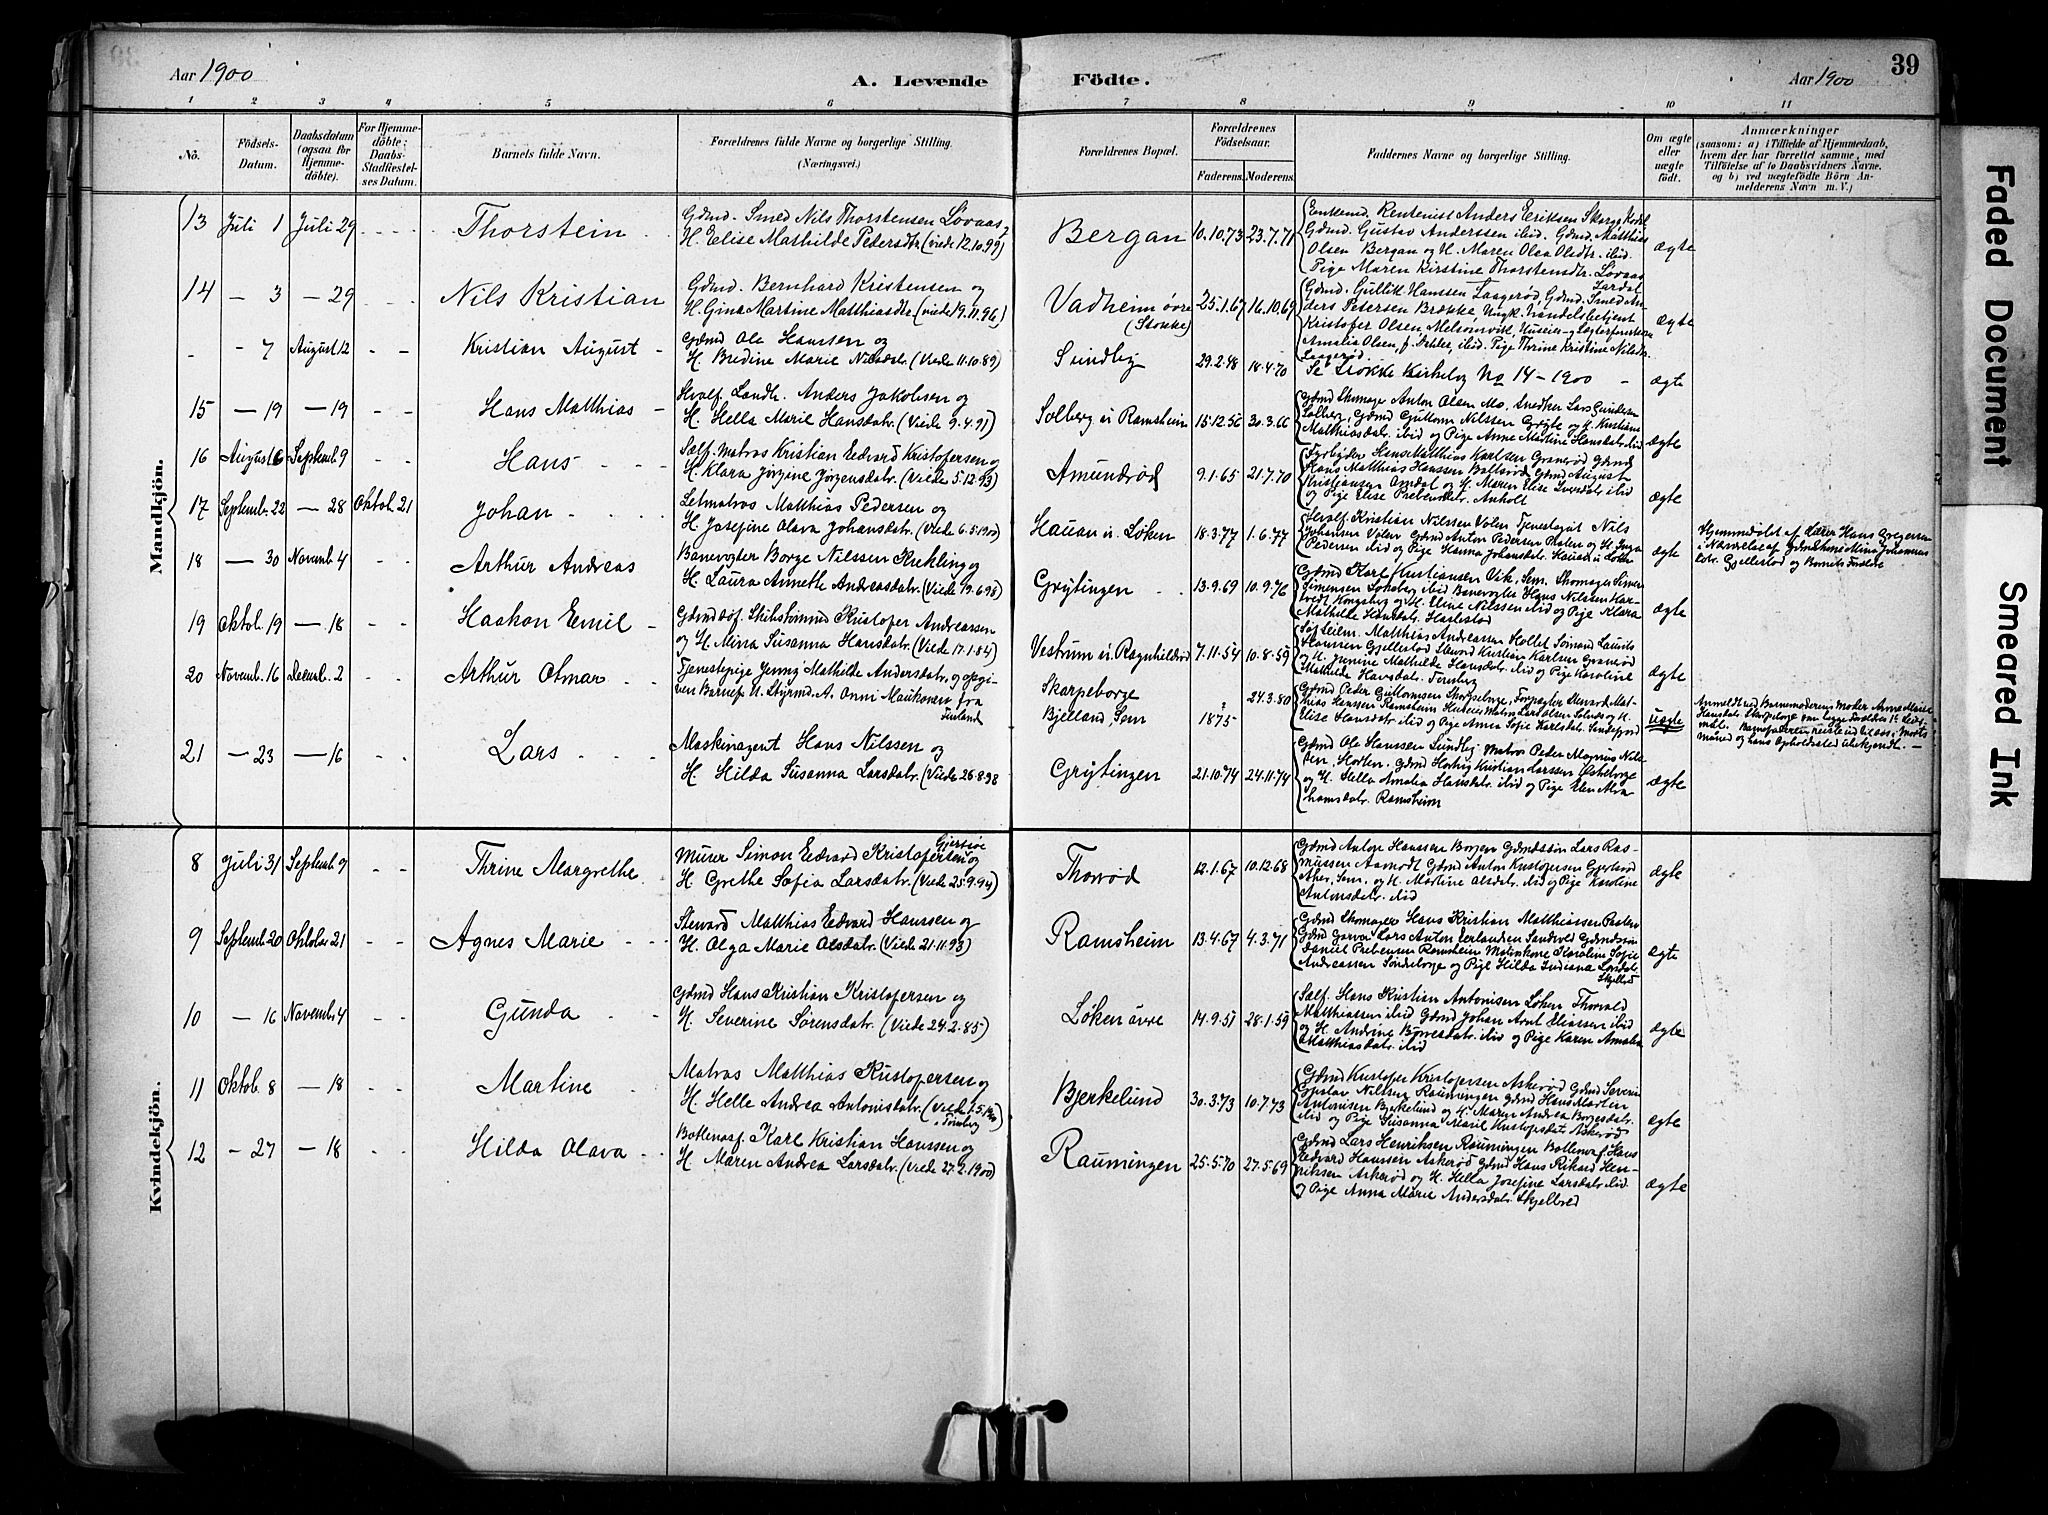 39
Aar 1900
A. Levende
Födte.
Aar 1900
1 2 3 4 5 6 7 8 9 10 11
No.
Födsels-Datum.
Daabsdatum (ogsaa for Hjemmedöbte).
For Hjemmedöbte; Daabs-Stadfæstelses Datum.
Barnets fulde Navn.
Forældrenes fulde Navne og borgerlige Stilling. (Næringsvei.)
Forældrenes Bopæl.
Forældrenes Födselsaar.
Faderens. Moderens.
Faddernes Navne og borgerlige Stilling.
Om ægte eller uægte födt.
Anmærkninger
(saasom: a) i Tilfælde af Hjemmedaab, hvem der har forrettet samme, med Tilföielse af to Daabsvidners Navne, og b) ved uægtefödte Börn Anmelderens Navn m. V.)
Mandkjön.
13 Juli 1 Juli 29 Thorstein
Gdmd. Smed Nils Thorstensen Lövaas,
H. Elise Mathilde Pedersdtr (viede 12.10.99)
Bergan 10.10.73 23.7.71
Rentenist Anders Eriksen
Gdmd. Gustav Anderssen ibid. Gdmd. Matthias
Olsen Bergan og H. Maren Olea Olsdtr. ibid.
Pige Maren Kirstine Thorstensdtr. Lövaas
Lardal
ægte
14 - 3 - 29 Nils Kristian
Gdmd. Bernhard Kristensen og
H. Gina Martine Matthiasdtr (viede 19.11.96)
Vadheim övre
(Stokke)
25.1.67 16.10.69
Gdmd. Gullik Hanssen Laagerød, Gdmd. Smed An-
ders Petersen Brække, Ungk. Handelsbetjent
Kristofer Olsen Melsomvik,
Amalia Olsen, ibid. Pige Thrine Kristine Nilsdtr.
Laagerød.
ægte
- - 7 August 12 Kristian August
Gdmd Ole Hansen og
H. Bredine Marie Nilsdtr. (Viede 11.10.89)
Sundby 29.2.48 18.4.70
Se Stokke Kirkebog No 14 - 1900 - ægte
15 - 19 - 19 Hans Matthias
Anders Jakobsen og
H. Hella Marie Hansdatr. (Viede 9.4.91)
Solberg u. Ramsheim 15.12.56 30.3.66
Gdmd Skomager Anton Olsen Mo, Snedker Lars Gundersen
Solberg, Gdmd Guttorm Nilssen Grøte og H. Kristiane
Matthiasdatr. ibid og Pige Anne Martine Hansdatr. ibid
ægte
16 August 6 Septemb. 9 Hans
Matros Kristian Edvard Kristofersen og
H. Klara Jörgine Jörgensdatr. (Viede 5.12.93)
Amundrød 9.1.65 21.7.70
Fyrbøder Hans Matthias Karlsen Granerød Gdmd
Hans Matthias Hanssen Bollerød, Gdmd August
Kristiansen Omdal og H. Maren Elise ibid
og Pige Elise Prebensdatr. Anholt
ægte
17 Septemb. 22 - 28 Oktob. 21 Johan
Matthias Pedersen og
H. Josefine Olava Johansdatr. (Viede 6.5.1900)
Hauan u. Løken 18.3.77 1.6.77
Kristian Nilssen Volen Tjenestegut Nils
Johansen Volen Gdmd Anton Pedersen
Pedersen ibid og Pige Hanna Johansdatr. Hauan u. Løken
ægte
Hjemmedøbt af Lærer Hans
i Nærværelse af Gdmdkone Mina Johannes-
datr. Gjellestad og Barnets Fader
18 - 30 Novemb. 4 Arthur Andreas
Banevogter Borge Nilssen Kjekling og
H. Laura Annette Andreasdatr. (Viede 19.6.98)
Grytingen 13.9.69 10.9.76
Gdmd Karl Kristiansen Vik, Sem, Skomager Simen
Simensen ibid Banevogter Hans Nilssen
H. Eline Nilssen ibid og Pige Klara
Mathilde Hansdatr.
ægte
19 Oktob. 19 - 18 Haakon Emil
Kristofer Andreassen
og H. Mina Susanna Hansdatr. (Viede 17.1.84)
Vestrum u. Ragnhildrød 7.11.54 10.8.59
Matthias Andreassen
Hansen Gjellestad Steward Kristian Karlsen Granerød
og H. Jensine Mathilde Hansdatr. ibid og Pige Karoline
Mathilde Hansdatr. Tønsberg
ægte
20 Novemb. 16 Decemb. 2 Arthur Otmar
Tjenestepige Jenny Mathilde Andersdatr. og opgi-
ven Barnef. U. Styrmd. A. Onni Maukonen fra
Finland
Skorpeborge
Bjelland, Sem
1875 24.3.80
Gdmd Peder Guttormsen Skorpeborge, Forpagter
Hanssen Ramsheim
Elise Hansdatr. ibid og Pige Anna Sofie Karlsdatr. Sandefjord
uægte
Anmeldt ved Barnemoderens Moder Anne Marie
Hansdatr. Skorpeborge
Barnefaderen reiste
og hans Opholdssted ubekjendt.
21 - 23 - 16 Lars
Maskinagent Hans Nilssen og
H. Hilda Susanna Larsdatr. (Viede 26.8.98
Grytingen 21.10.74 24.11.74
Gdmd Ole Hanssen Sundby Matros Peder Magnus Nils-
sen, Horten, Gdmd Kristian Larssen
og H. Hella Amalia Hansdatr. ibid og Pige Elen Alva
Ramsheim
ægte
Kvindekjön.
8 Juli 31 Septemb. 9 Thrine Margrethe
Murer Simon Edvard Kristofersen og
H. Grethe Sofia Larsdatr. (Viede 25.9.94)
Thorrød 12.1.67 10.12.68
Gdmd Anton Hanssen Borgen Gdmdssøn Lars Ras-
mussen Aamodt Gdmd Anton Kristofersen
Aker, Sem, og H. Martine Olsdatr. ibid og Pige Karoline
Antonsdatr. ibid
ægte
9 Septemb. 20 Oktober 21 Agnes Marie
Steward Matthias Edvard Hanssen og
H. Olga Marie Olsdatr. (Viede 21.11.93)
Ramsheim 13.4.67 4.3.71
Gdmd Skomager Hans Kristian Matthiassen
Gdmd Garver Lars Anton Erlandsen Sandvold Gdmdssøn
Daniel Prebensen Ramsheim Matroskone Karoline Sofie
Andreassen Sondeborge og Pige Hilda Indiana Larsdatr.
Skjellrød
ægte
10 - 16 Novemb. 4 Gunda
Gdmd Hans Kristian Kristofersen og
H. Severine Sörensdatr. (Viede 24.2.85)
Løken övre 14.9.51 28.1.59
Hans Kristian Antonisen Løken Thorvald
Matthiassen ibid Gdmd Johan Arnt Eliassen ibid
og H. Andrine Børresdatr. ibid og Pige Karen Amalia
Matthiasdatr. ibid
ægte
11 Oktob. 8 - 18 Martine
Matros Matthias Kristofersen og
H. Helle Andrea Antonisdatr.
i Tønsberg
Bjerkelund 30.3.73 10.7.73
Gdmd Kristofer Kristofersen Askerød Gdmd Severin
Gustav Nilssen Raumingen Gdmd Hans Martin
Antonisen Bjerkelund og H. Maren Andrea Borgesdatr.
ibid og Pige Susanna Marie Kristofsdatr Askerød
ægte
12 - 27 - 18 Hilda Olava
Karl Kristian Hanssen og
H. Maren Andrea Larsdatr. (Viede 27.2.1900)
Raumingen 25.5.70 27.5.69
Gdmd Lars Henriksen Raumingen Hans
Edvard Hanssen Askerød Gdmd Hans Rikard Hen-
riksen Askerød og H. Hella Josefine Larsdatr. ibid.
og Pige Anna Marie Andersdatr. Skjelbred
ægte
Faded Document
Smeared Ink